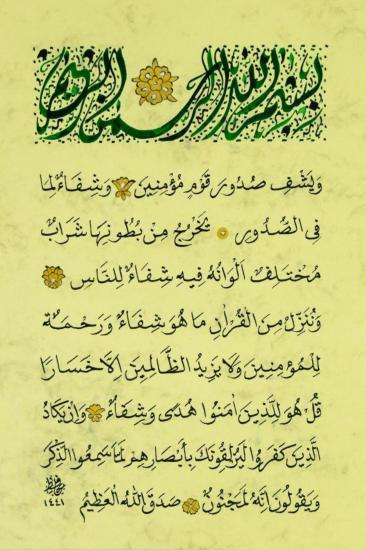 بسم الله الرحمن الرحيم
وَيَشْفِ صُدُورَ قَوْمٍ مُؤْمِنِينَ وَشِفَاءٌ لِمَا
فِي الصُّدُورِ يَخْرُجُ مِنْ بُطُونِهَا شَرَابٌ
مُخْتَلِفٌ اَلْوَانُهُ فِيهِ شِفَاءٌ لِلنَّاسِ
وَنُنَزِّلُ مِنَ الْقُرْاٰنِ مَا هُوَ شِفَاءٌ وَرَحْمَةٌ
لِلْمُؤْمِنِينَ وَلَا يَزِيدُ الظَّالِمِينَ اِلَّا خَسَارًا
قُلْ هُوَ لِلَّذِينَ اٰمَنُوا هُدًى وَشِفَاءٌ وَاِنْ يَكَادُ
الَّذِينَ كَفَرُوا لَيُزْلِقُونَكَ بِاَبْصَارِهِمْ لَمَّا سَمِعُوا الذِّكْرَ
وَيَقُولُونَ اِنَّهُ لَمَجْنُونٌ صَدَقَ اللّٰهُ الْعَظِيمُ
١٤٤١